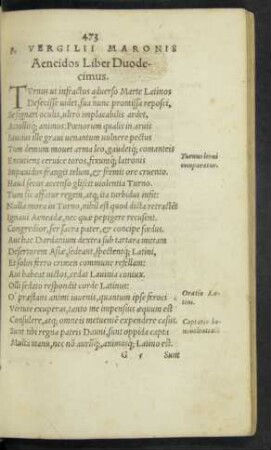 473
P. VERGILII MARONIS
Aeneidos Liber Duode-
cimus.
TVrnus ut infractos aduerso Marte Latinos
Defecisse uidet, sua nunc promissa reposci,
Se signari oculis, ultrò implacabilis ardet,
Attollitq; animos: Pœnorum qualis in aruis
Saucius ille graui uenantum uulnere pectus
Tum demum mouet arma leo, gaudetq; comanteis
Excutiens ceruice toros, fixumq; latronis
Impauidus frangit telum, & fremit ore cruento.
Haud secus accenso gliscit uiolentia Turno.
Tum sic affatur regem, atq; ita turbidus infit:
Nulla mora in Turno, nihil est quod dicta retractẽt
Ignaui Aeneadæ, nec quæ pepigere recusent.
Congredior, fer sacra pater, & concipe fœdus.
Aut hac Dardanium dextra sub tartara mittam
Desertorem Asiæ, sedeant, spectentq; Latini,
Et solus ferro crimen commune refellam:
Aut habeat uictos, cedat Lauinia coniux.
Olli sedato respondit corde Latinus:
O' præstans animi iuuenis, quantum ipse feroci
Virtute exuperas, tanto me impensius æquum est
Consulere, atq; omneis metuentẽ expendere casus.
Sunt tibi regna patris Dauni, sunt oppida capta
Multa manu, nec nõ aurũq;, animusq; Latino est.
G Sunt
Turnus leoni
comparatur.
Oratio La-
tini.
Captatio be-
neuolentiæ.